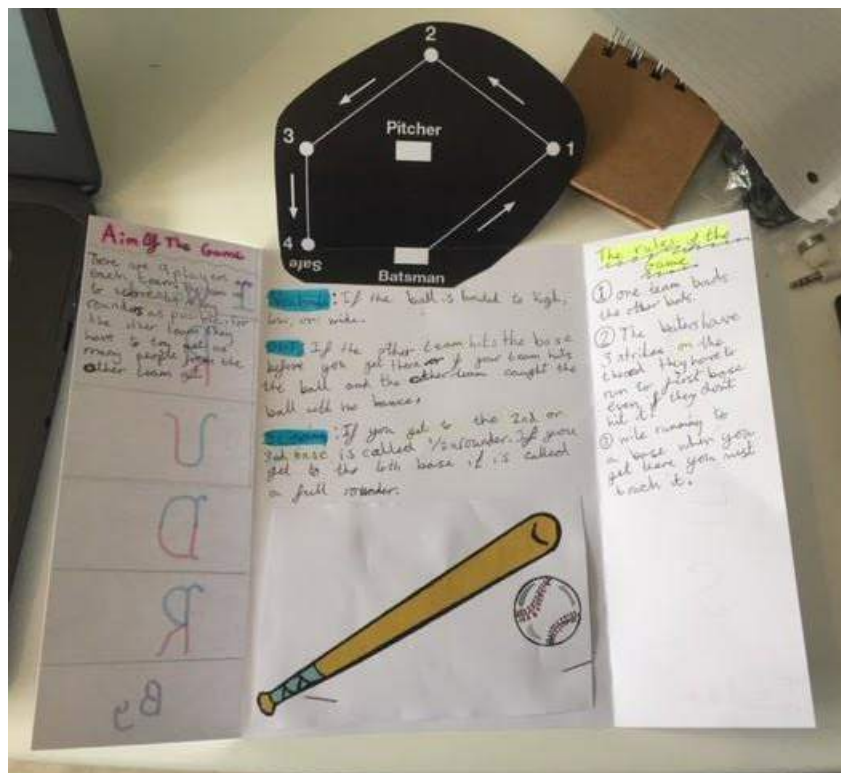 2
3
Pitcher
1
4
Safe
Batsman
Aim Of The Game
There are 9 players per
each team
rounders as possible for
the other team they
have to try get as
many people from the
other team
No balls: If the ball is bowled to high,
low, or wide.
OUT: If the other team hits the base
before you get there or if your team hits
the ball and the other team caught the
ball with no bounce.
Scoring: If you get to the 2nd or
3rd base is called 1/2 a rounder. If you
get to the 4th base it is called
a full rounder.
The rules of the
game
① one team bowls
the other bats.
② The batters have
3 strikes on the
they have to
run to first base
even if they don't
hit it.
③ wile running to
a base when you
get there you must
touch it.
U
D
R
By